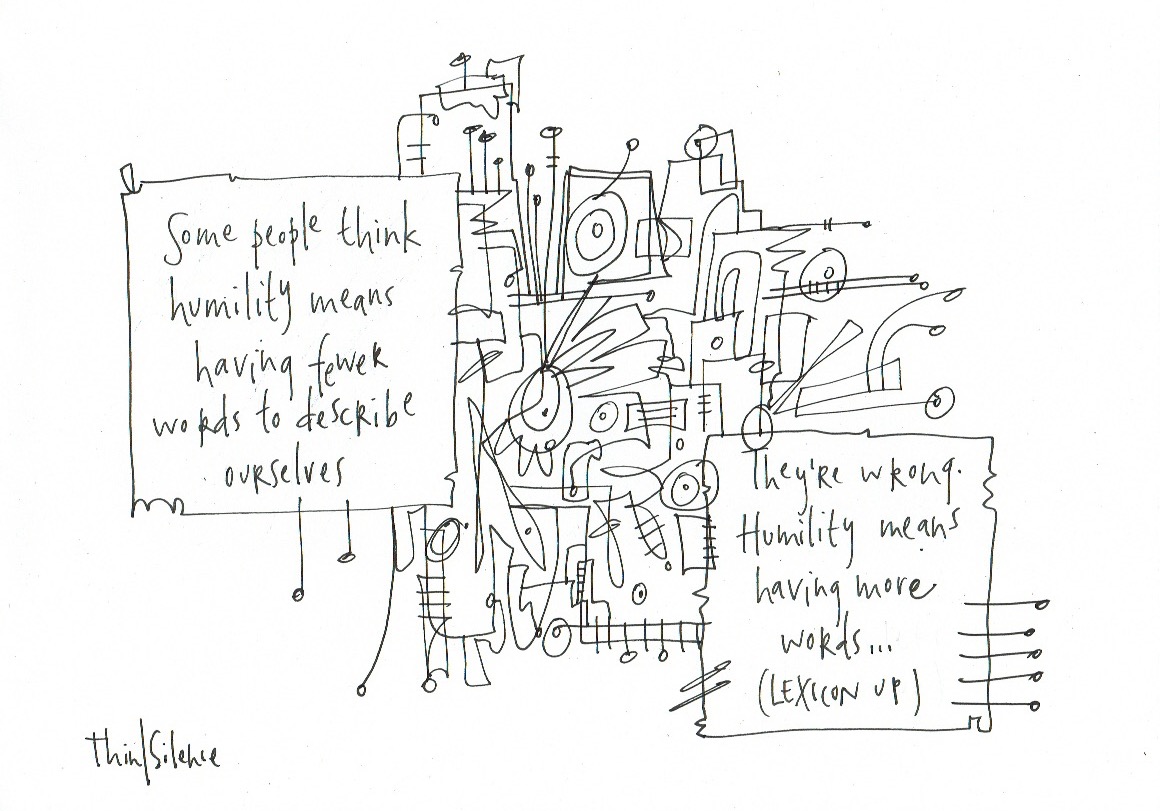 Some people think
humility means
having fewer
words to describe
ourselves
They're wrong.
Humility means
having more
words...
(LEXICON UP)
Thin/Silence